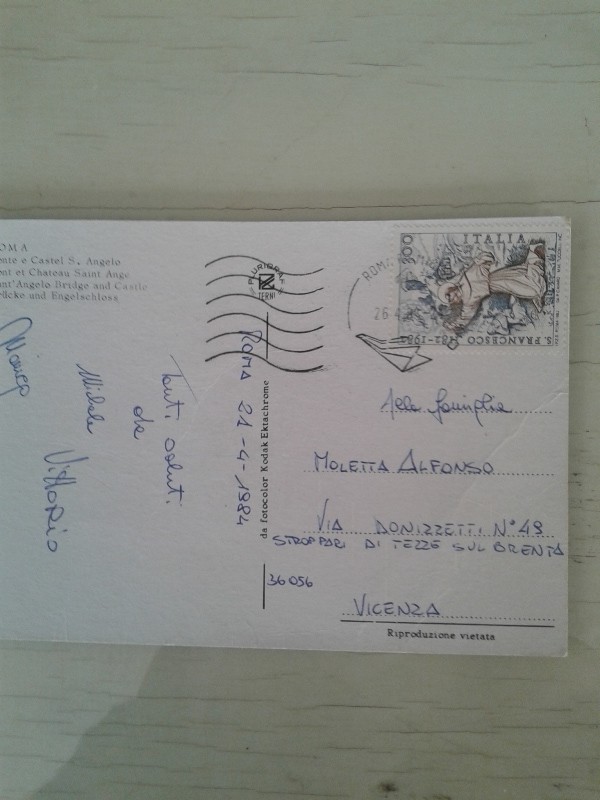 ROMA
Ponte e Castel S. Angelo
Pont et Chateau Saint Ange
Sant'Angelo Bridge and Castle
Brücke und Engelschloss
PLURIGRAF
TERNI
ROMA
26.4
ITALIA
300
S. FRANCESCO 1182-1982
ROMA 21-4-1984
Tanti saluti
da
Michele
Vittorio
Monica
da fotocolor Kodak Ektachrome
Alla famiglia
MOLETTA ALFONSO
VIA DONIZZETTI N°49
STROPPARI DI TEZZE SUL BRENTA
36056
VICENZA
Riproduzione vietata